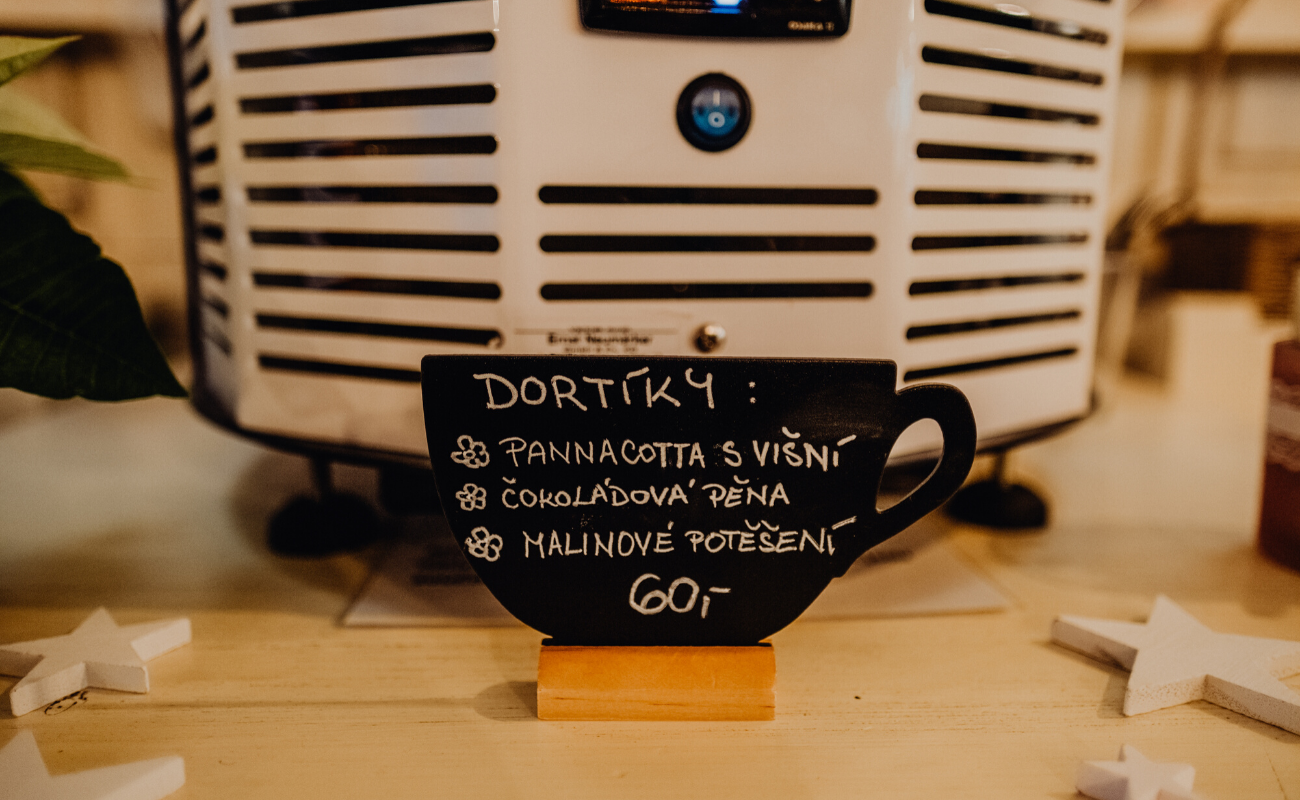 DORTÍKY :
PANNACOTTA S VIŠNÍ
ČOKOLÁDOVÁ PĚNA
MALINOVÉ POTĚŠENÍ
60,-